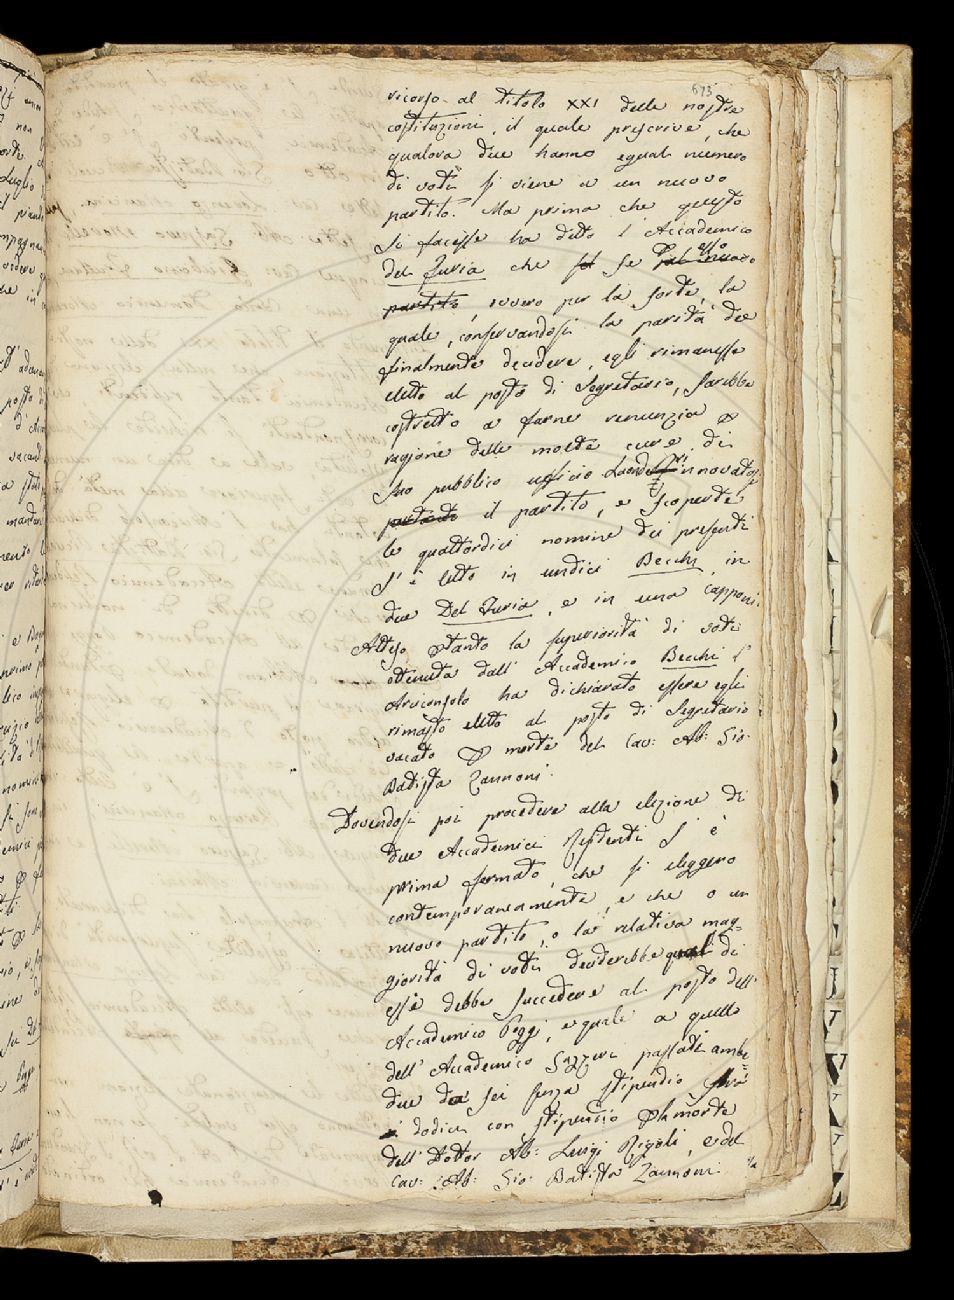 673
ricorso al titolo XXI delle nostre
costituzioni, il quale prescrive, che
qualora due hanno egual numero
di voti si viene a un nuovo
partito. Ma prima che questo
si facesse ha detto l'Accademico
Del Furia che se esso
partito, ovvero per la sorte, la
quale, conservandosi la parità dee
finalmente decidere, egli rimanesse
eletto al posto di Segretario, sarebbe
costretto a farne renunzia p
ragione delle molte cure di
suo pubblico ufficio. Laonde innovatosi
partito il partito, e scoperte
le quattordici nomine dei presenti
s'è letto in undici Becchi, in
due Del Furia, e in una Capponi.
Atteso p tanto la superiorità di voti
ottenuta dall'Accademico Becchi l'
Arciconsolo ha dichiarato essere egli
rimasto eletto al posto di Segretario
vacato p morte del Cav: Ab: Gio:
Batista Zannoni.
Dovendosi poi procedere alla elezione di
due Accademici Residenti s'è
prima fermato, che si eleggero
contemporaneamente, e che o un
nuovo partito, o la relativa mag-
giorità di voti deciderebbe qual di
essi debba succedere al posto dell'
Accademico Poggi, e quale a quello
dell'Accademico Gazzeri passati ambe-
due da sei senza stipendio fra'
dodici con stipendio p la morte
dell'Dottor Ab: Luigi Rigoli, e del
Cav: Ab: Gio: Batista Zannoni.